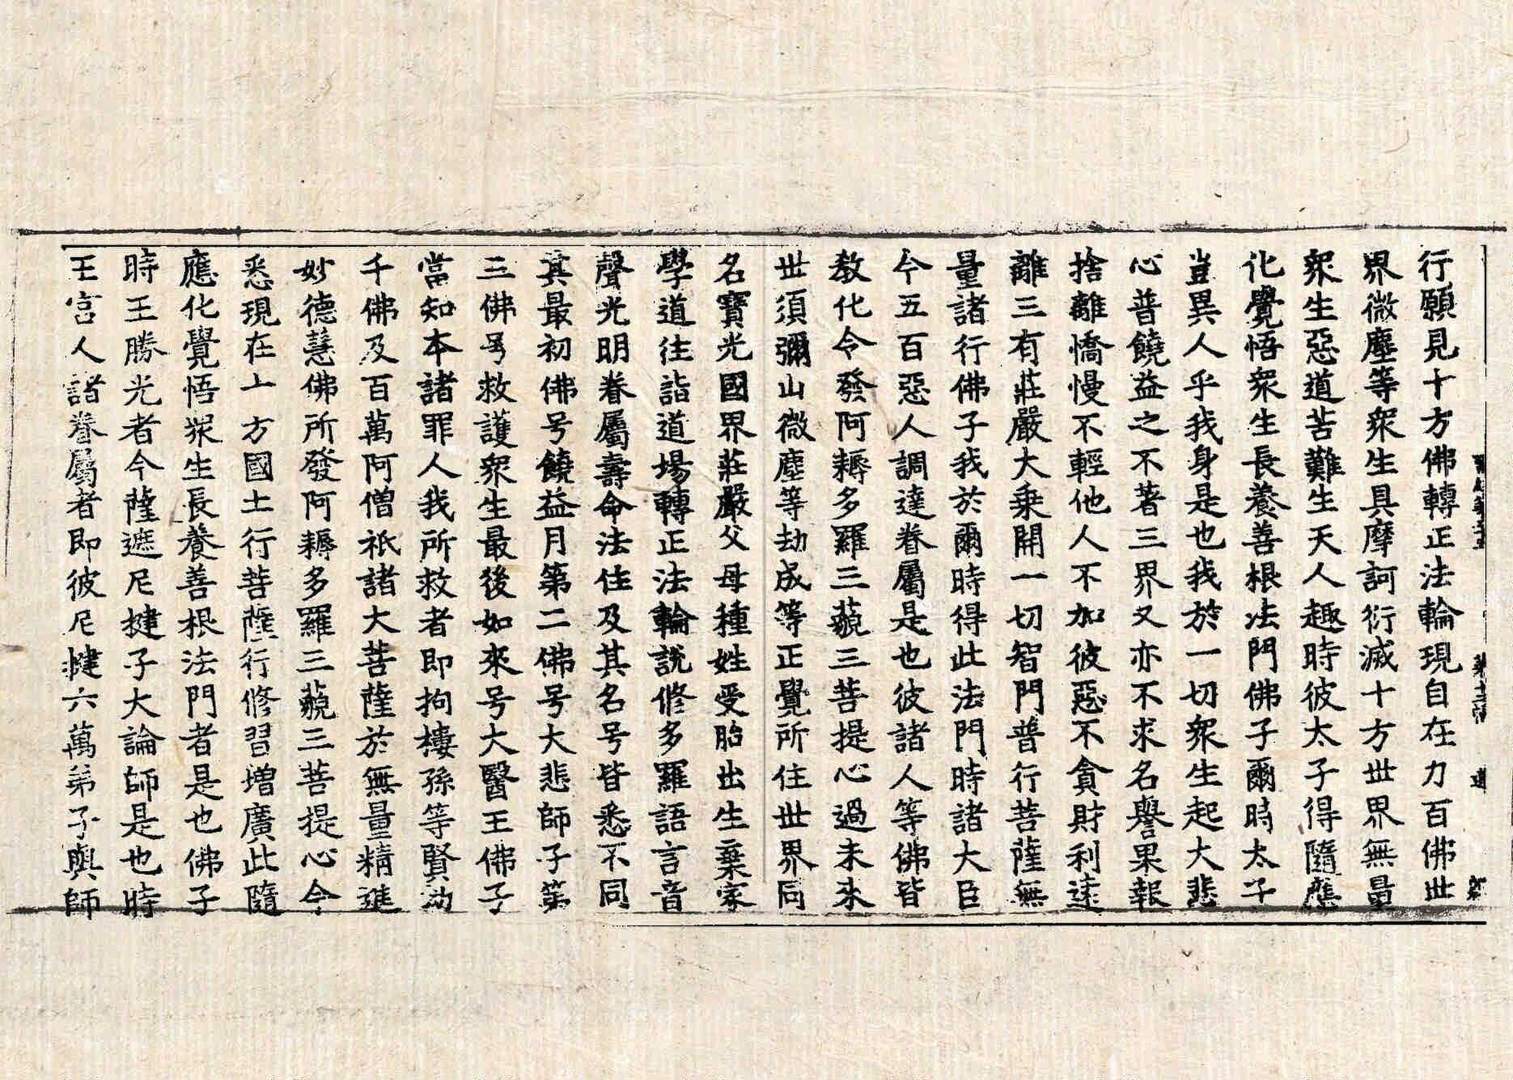 行願見十方佛轉正法輪現自在力百佛世
界微塵等衆生具摩訶衍滅十方世界無量
衆生惡道苦難生天人趣時彼太子得隨應
化覺悟衆生長養善根法門佛子爾時太子
豈異人乎我身是也我於一切衆生起大悲
心普饒益之不著三界又亦不求名譽果報
捨離憍慢不輕他人不加彼惡不貪財利遠
離三有莊嚴大乗開一切智門普行菩薩無
量諸行佛子我於爾時得此法門時諸大臣
今五百惡人調達眷屬是也彼諸人等佛皆
教化令發阿耨多羅三藐三菩提心過未来
世須彌山微塵等劫成等正覺所住世界同
名寶光國界莊嚴父母種姓受胎出生棄家
學道往詣道場轉正法輪説修多羅語言音
聲光明眷屬壽命法住及其名号皆悉不同
其最初佛号饒益月第二佛号大悲師子第
三佛号救護衆生最後如來号大醫王佛子
當知本諸罪人我所救者即拘樓孫等賢劫
千佛及百萬阿僧祇諸大菩薩於無量精進
妙德慧佛所發阿耨多羅三藐三菩提心今
悉現在十方國土行菩薩行修習增廣此隨
應化覺悟衆生長養善根法門者是也佛子
時王勝光者今薩遮尼揵子大論師是也時
王宮人諸眷屬者即彼尼揵六萬弟子與師